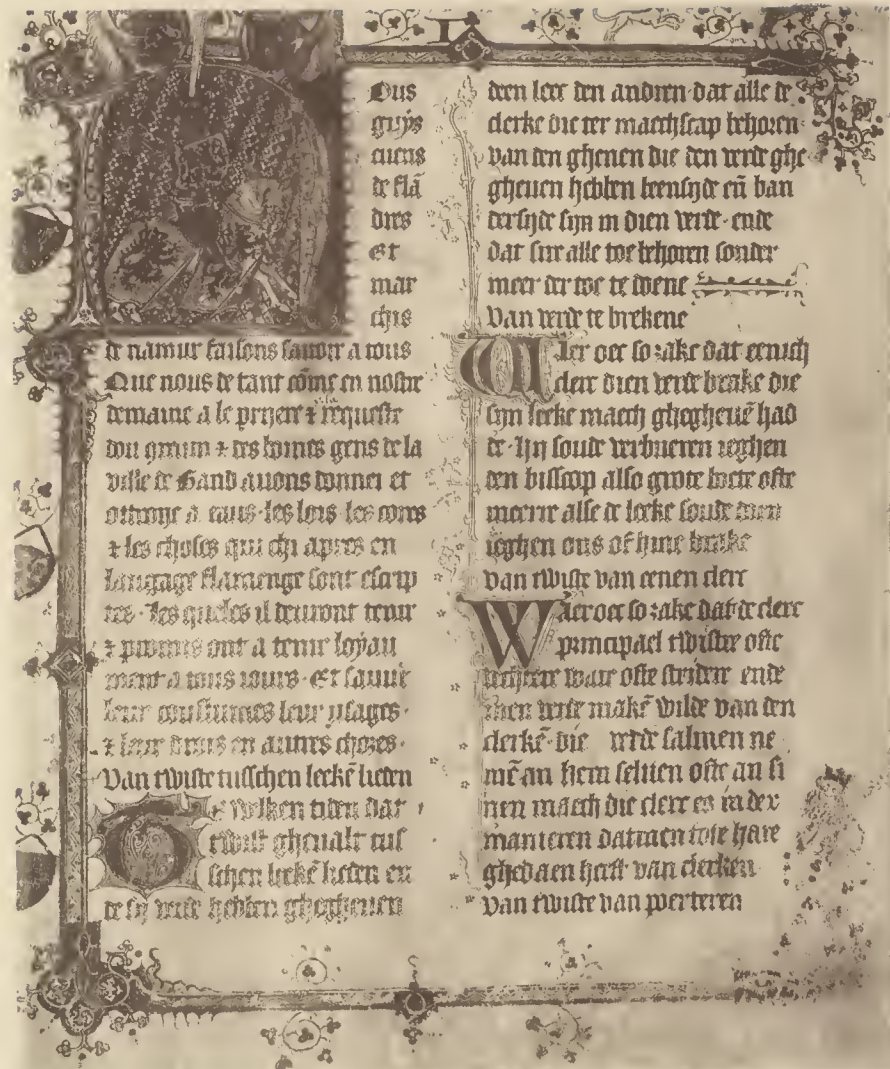 Ous
guys
cuens
de flā
dres
Et
mar
chis
de namur faisons savoir a tous
Que nous de tant cōme en nostre
demaine a le pryere ⁊ requeste
dou ⁊ des boines gens de la
ville de Gand avons donnei et
ottroye a eaus · les lois · les
⁊ les choses qui chi apres en
langage flamenge sont escrip
tes · les queles il devront tenir
⁊ promis ont a tenir loyau
ment a tous iours · Et sauve
leur coustumes leur usages ·
⁊ leur drois en autres chozes ·
Van twiste tusschen leekē lieden
Te welken tiden dat
twist ghevalt tus
schen leekē lieden en
de sy verde hebben ghegheven
deen leec den andren · dat alle de
clerke die ter maechscap behoren ·
van den ghenen die den verde ghe
gheven hebben eensyde eñ van
dersyde syn in dien verde · ende
dat sire alle toe behoren sonder
meer der toe te doene
Van verde te brekene
Waer oec so zake dat eenich
clerc dien verde brake die
syn leeke maech gheghevē had
de · Hy soude verbueren ieghen
den bisscop also grote boete ofte
meerre alse de leeke soude doen
ieghen ons of hine brake
Van twiste van eenen clerc
Waer oec so zake dat de clerc
principael twister ofte
vechtere ware ofte stridere ende
men verde makē wilde van den
clerkē · die verde salmen ne
mē an hem selven ofte an si
nen maech die clerc es in der
manieren datmen tote hare
ghedaen heeft van clerken
Van twiste van poerteren